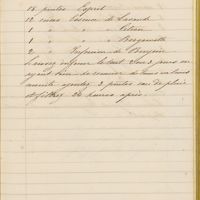 18 pintes Esprit
12 onces Essence de Lavande
1 " " Citron
1 " " Bergamotte
2 " Infusion de Benjoin
Laissez infuser le tout 2 ou 3 jours en
ayant soin de remuer de tems en tems
ensuite ajoutez 3 pintes eau de pluie
et filtrez 24 heures après.